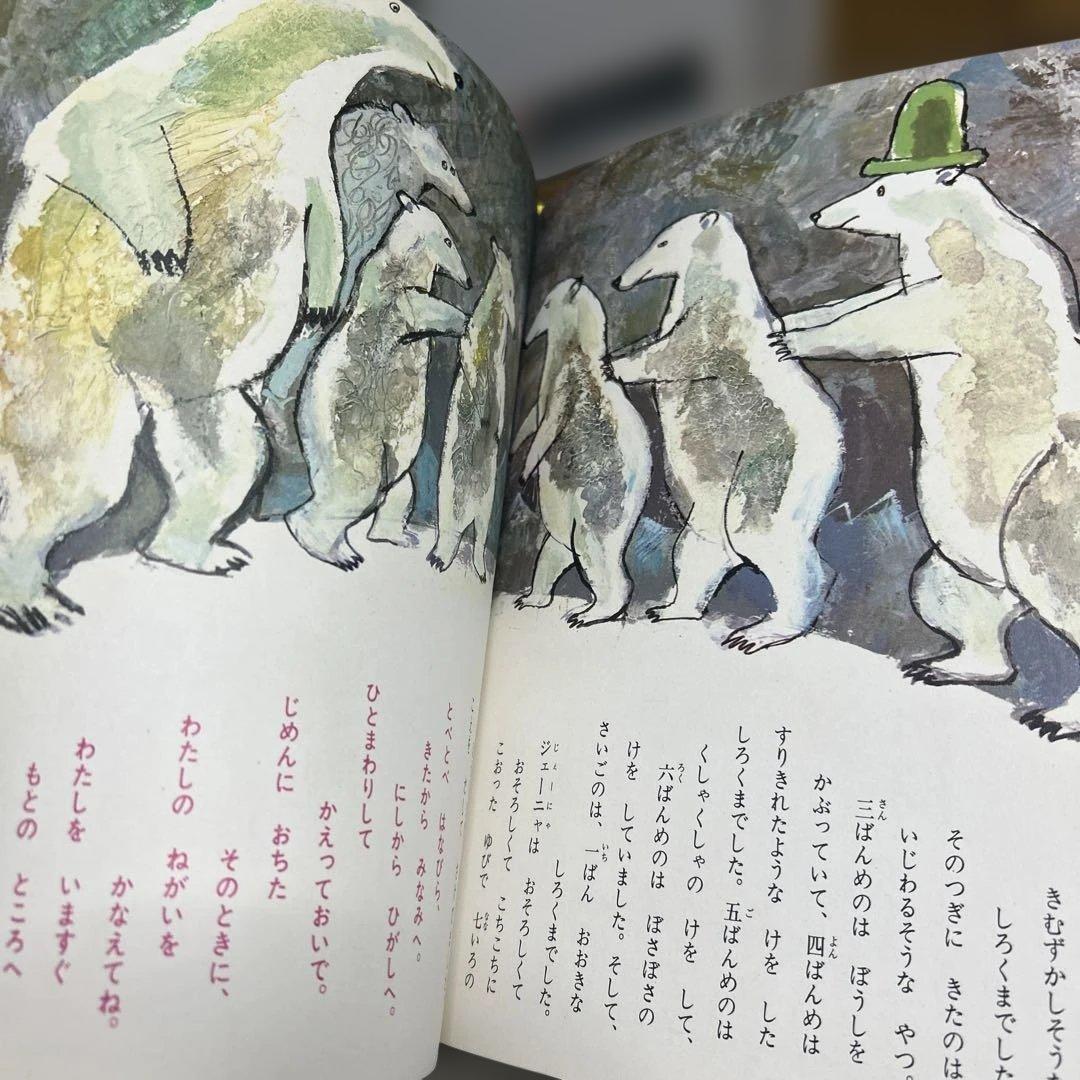 きむずかしそうな
しろくまでした
そのつぎに きたのは
いじわるそうな やつ。
三ばんめのは ぼうしを
かぶっていて、四ばんめは
すりきれたような けを した
しろくまでした。五ばんめのは
くしゃくしゃの けを して、
六ばんめのは ぼさぼさの
けを していました。そして、
さいごのは、一ばん おおきな
しろくまでした。
ジェーニャは おそろしくて
おそろしくて こちこちに
こおった ゆびで 七いろの
とべとべ はなびら、
きたから みなみへ。
にしから ひがしへ。
ひとまわりして
かえっておいで。
じめんに おちた
そのときに、
わたしの ねがいを
かなえてね。
わたしを いますぐ
もとの ところへ